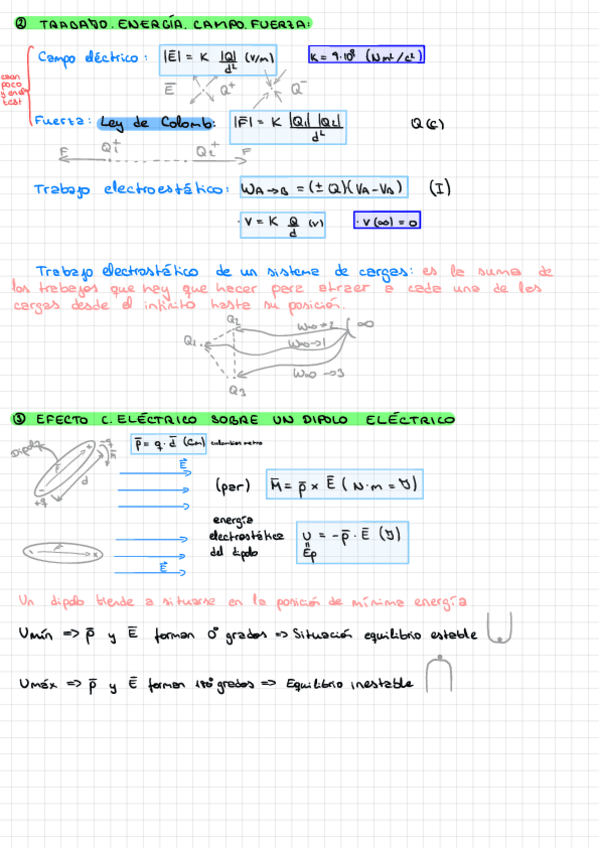 ② TRABAJO. ENERGÍA. CAMPO. FUERZA:
Campo eléctrico: |E̅| = K |Q|/d² (V/m)
K = 9·10⁹ (Nm²/c²)
E̅ Q⁺ Q⁻
caen poco y en el test
Fuerza: Ley de Colomb: |F̅| = K |Q₁| |Q₂|/d² Q (c)
F Q₁⁺ Q₂⁺ F
Trabajo electroestático: W_A→B = (± Q)(V_A - V_B) (I)
· V = K Q/d (V) · V(∞) = 0
Trabajo electrostático de un sistema de cargas: es la suma de
los trabajos que hay que hacer para atraer a cada una de las
cargas desde el infinito hasta su posición.
Q₂ W∞→2 ∞
Q₁ W∞→1
W∞→3
Q₃
③ EFECTO C. ELÉCTRICO SOBRE UN DIPOLO ELÉCTRICO
Dipolo -q M̅ d +q
p̅ = q · d̅ (Cm) culombios metro
E̅
(par) M̅ = p̅ × E̅ (N·m = J)
energía
electrostática
del dipolo
U = -p̅ · E̅ (J)
=
Ep
E̅
Un dipolo tiende a situarse en la posición de mínima energía
Umín => p̅ y E̅ forman 0° grados => Situación equilibrio estable
Umáx => p̅ y E̅ forman 180° grados => Equilibrio inestable